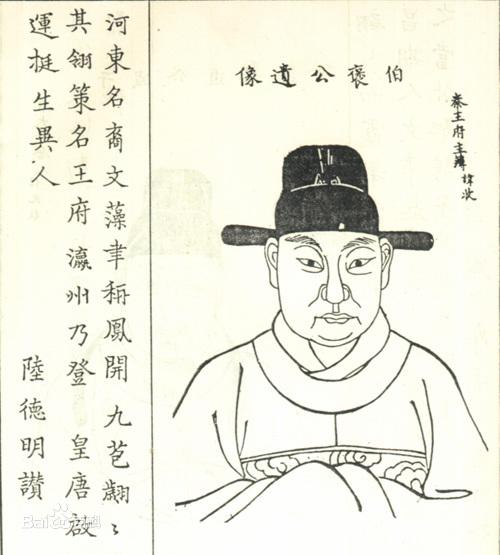 秦王府主簿諱收
伯褒公遺像
河東名裔文藻聿稱鳳開九苞翽〻
其翎策名王府瀛州乃登 皇唐啟
運挺生異人 陸德明讚
Bai百科